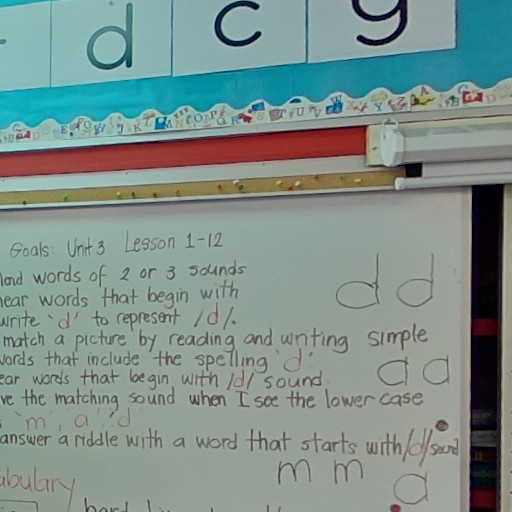 d c g
Goals: Unit 3 Lesson 1-12
words of 2 or 3 sounds
words that begin with
write 'd' to represent /d/.
d d
match a picture by reading and writing simple
words that include the spelling 'd'.
words that begin with /d/ sound
a a
the matching sound when I see the lower case
'm', a', 'd'
answer a riddle with a word that starts with /d/ sound
m m a